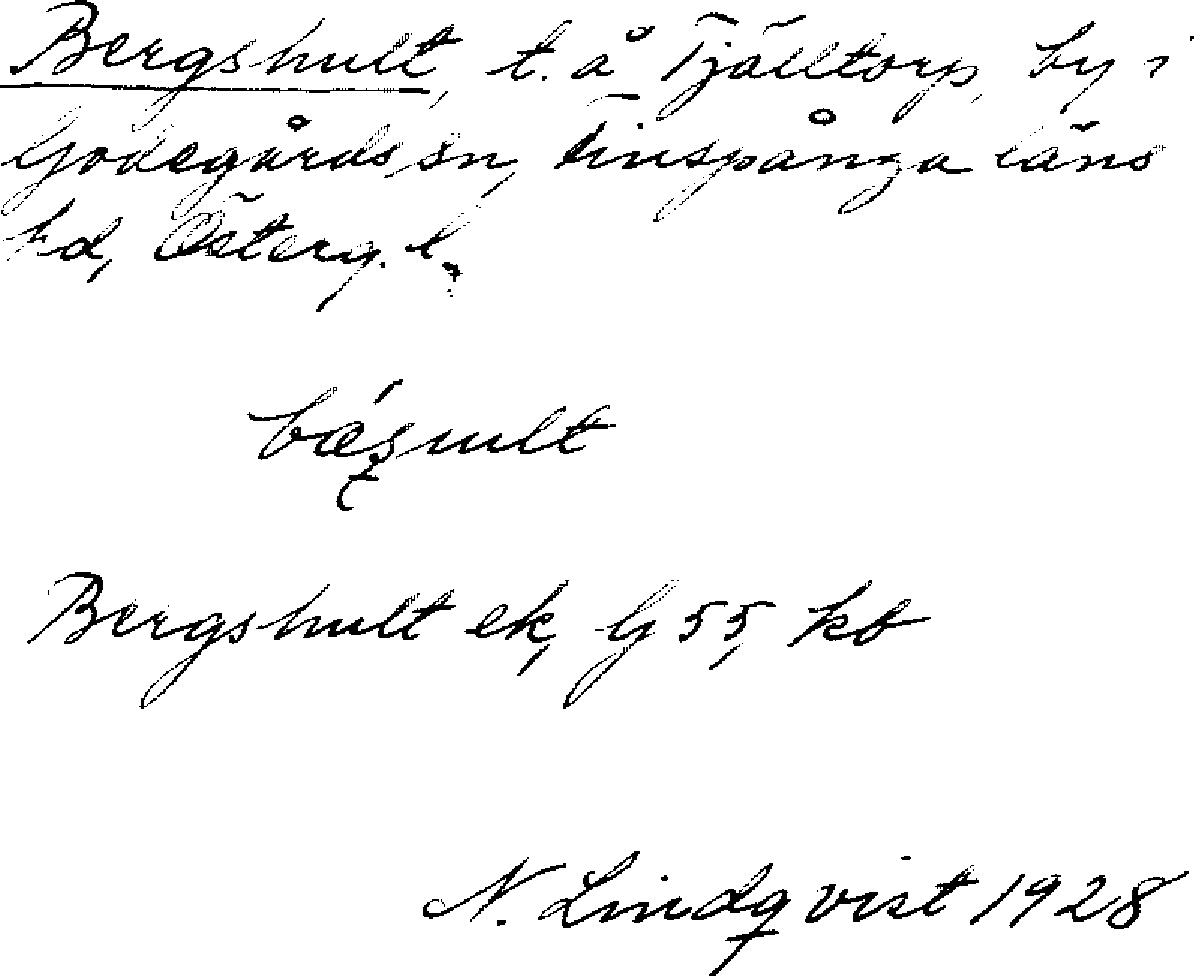 Bergshult, t. å Tjälltorp, by i
Godegårds sn, Finspånga läns
hd, Österg. l.
bǽsult
Bergshult ek, G 55, kb
N. Lindqvist 1928